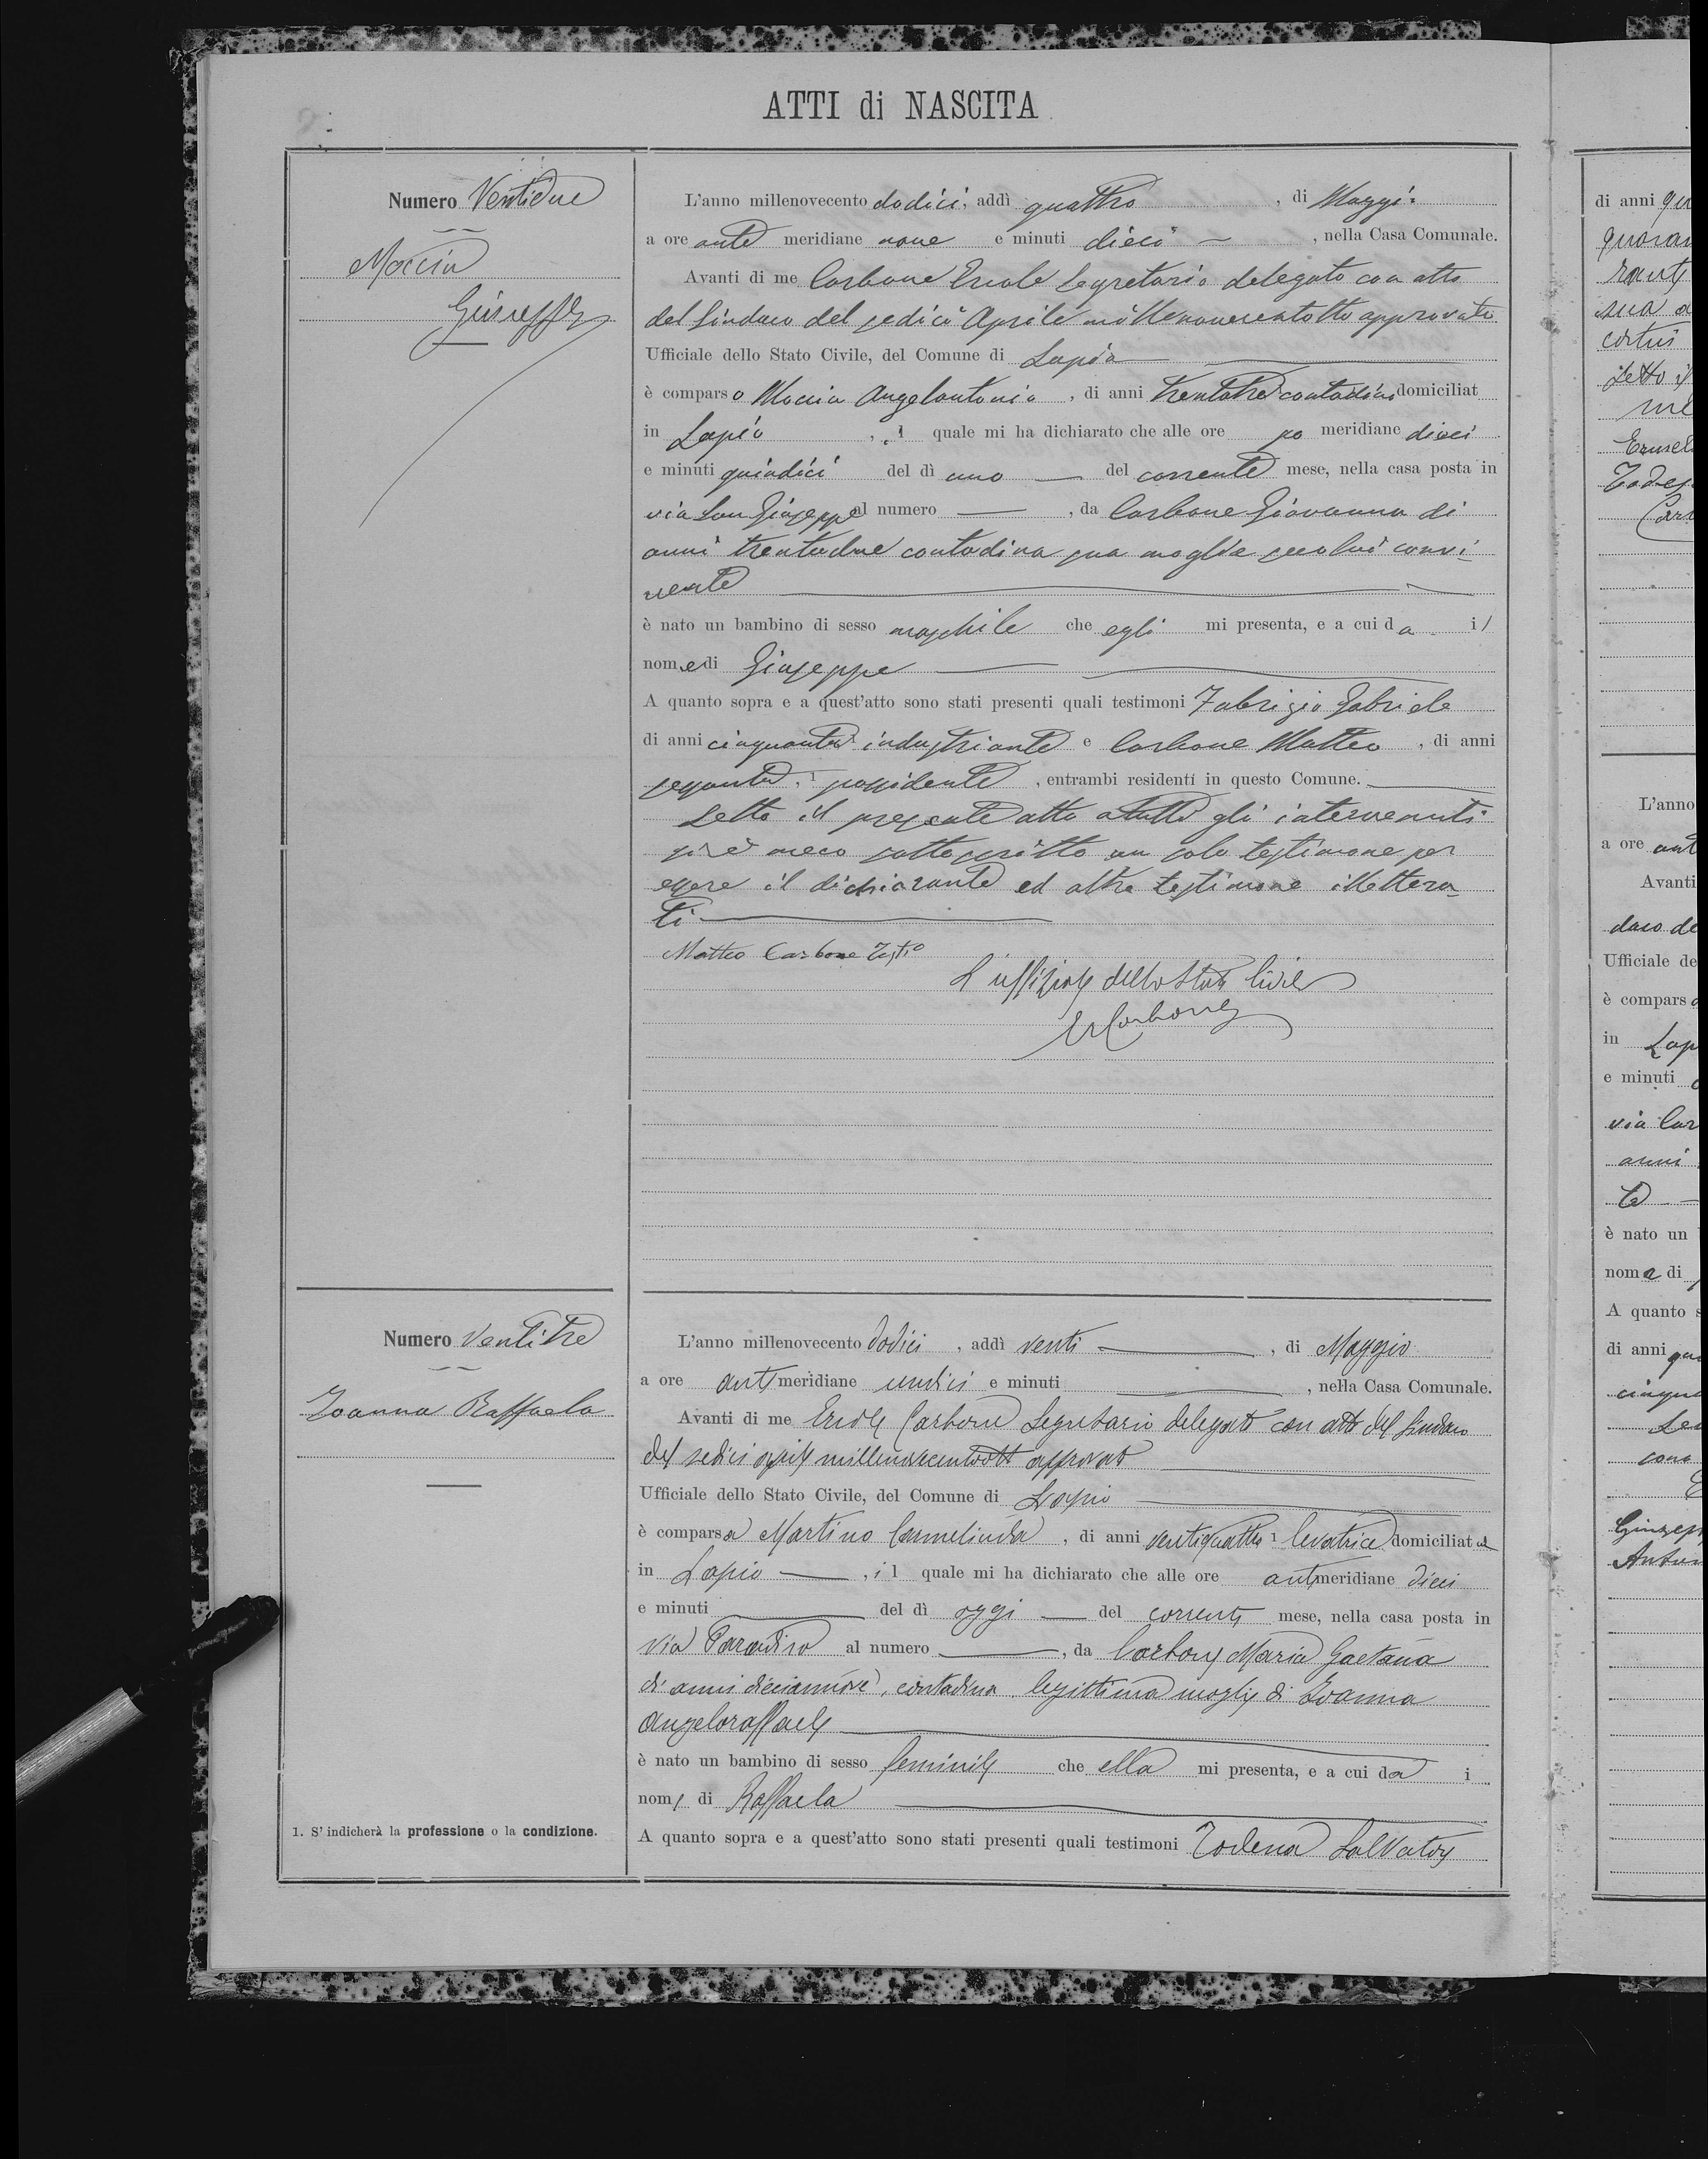 ATTI di NASCITA
Numero Ventidue
Moccia
Giuseppe
L'anno millenovecento dodici, addì quattro, di Maggio
a ore ante meridiane nove e minuti dieci, nella Casa Comunale.
Avanti di me Carbone Ercole Segretario delegato con atto
del Sindaco del sedici Aprile millenovecentotto approvato
Ufficiale dello Stato Civile, del Comune di Lapio
è comparso Moccia Angelantonio, di anni trentatre contadino domiciliat
in Lapio, il quale mi ha dichiarato che alle ore po meridiane dieci
e minuti quindici del dì uno del corrente mese, nella casa posta in
via San Giuseppe al numero, da Carbone Giovanna di
anni trentadue contadina sua moglie secolui convi-
vente
è nato un bambino di sesso maschile che egli mi presenta, e a cui da il
nome di Giuseppe
A quanto sopra e a quest'atto sono stati presenti quali testimoni Fabrizio Gabriele
di anni cinquanta industriante e Carbone Matteo, di anni
sessanta, possidente, entrambi residenti in questo Comune.
Letto il presente atto a tutti gli intervenuti
si è meco sottoscritto un solo testimone per
essere il dichiarante ed altro testimone illettera-
ti
Matteo Carbone Testio
L'uffiziale dello Stato Civile
E Carbone
Numero Ventitre
Ioanna Raffaela
L'anno millenovecento dodici, addì venti, di Maggio
a ore anti meridiane undici e minuti, nella Casa Comunale.
Avanti di me Ercole Carbone Segretario delegato con atto del Sindaco
del sedici aprile millenovecentotto approvato
Ufficiale dello Stato Civile, del Comune di Lapio
è comparsa Martino Carmelinda, di anni ventiquattro levatrice domiciliata
in Lapio, il quale mi ha dichiarato che alle ore antimeridiane dieci
e minuti del dì oggi del corrente mese, nella casa posta in
via Paradiso al numero, da Carbone Maria Gaetana
di anni diciannove, contadina, legittima moglie di Ioanna
Angeloraffaele
è nato un bambino di sesso feminile che ella mi presenta, e a cui da i
nome di Raffaela
A quanto sopra e a quest'atto sono stati presenti quali testimoni Todena Salvatore
1. S' indicherà la professione o la condizione.
di anni
sua
Letto
L'anno
a ore ant
Avanti
daco de
Ufficiale de
è compars
in Lap
e minuti
via Car
anni
te
è nato un
nome di
A quanto s
di anni
cinque
Giusep
Anton